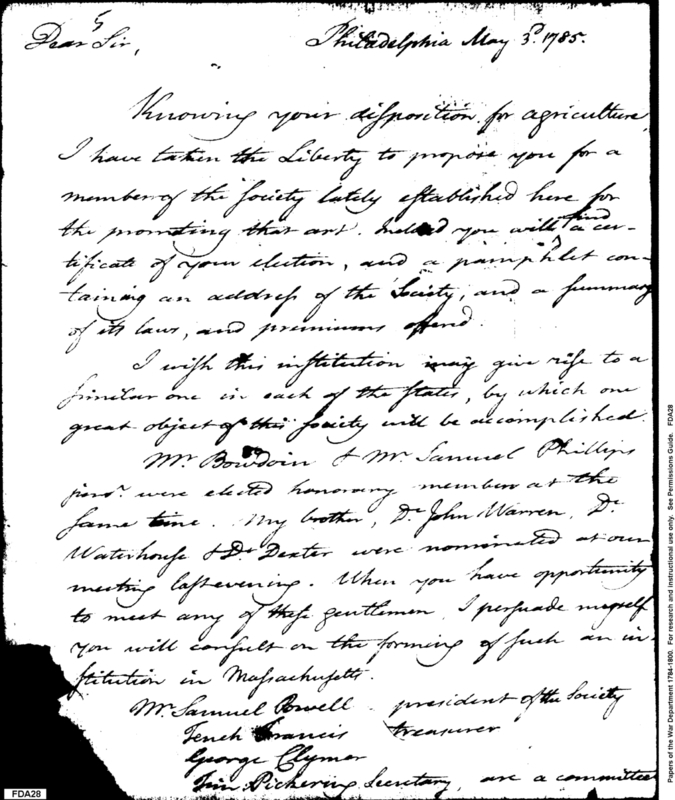 Dear Sir, Philadelphia May 3d. 1785.
Knowing your disposition for agriculture,
I have taken the Liberty to propose you for a
member of the Society lately established here for
the promoting that art. you will find a cer-
tificate of your election, and a pamphlet con-
taining an address of the Society, and a summary
of its laws, and premiums offered.
I wish this institution may give rise to a
similar one in each of the States, by which one
great object of this Society will be accomplished.
Mr. Bowdoin & Mr. Samuel Phillips
junr. were elected honorary members at the
same time. My brother, Dr. John Warren, Dr.
Waterhouse & Dr. Dexter were nominated at our
meeting last evening. When you have opportunity
to meet any of these gentlemen, I persuade myself
you will consult on the forming of such an in-
stitution in Massachusetts.
Mr. Samuel Powell - president of the Society
Tench Francis treasurer
George Clymer
Tim. Pickering Secretary, are a committee
FDA28
Papers of the War Department 1784-1800. For research and instructional use only. See Permissions Guide. FDA28